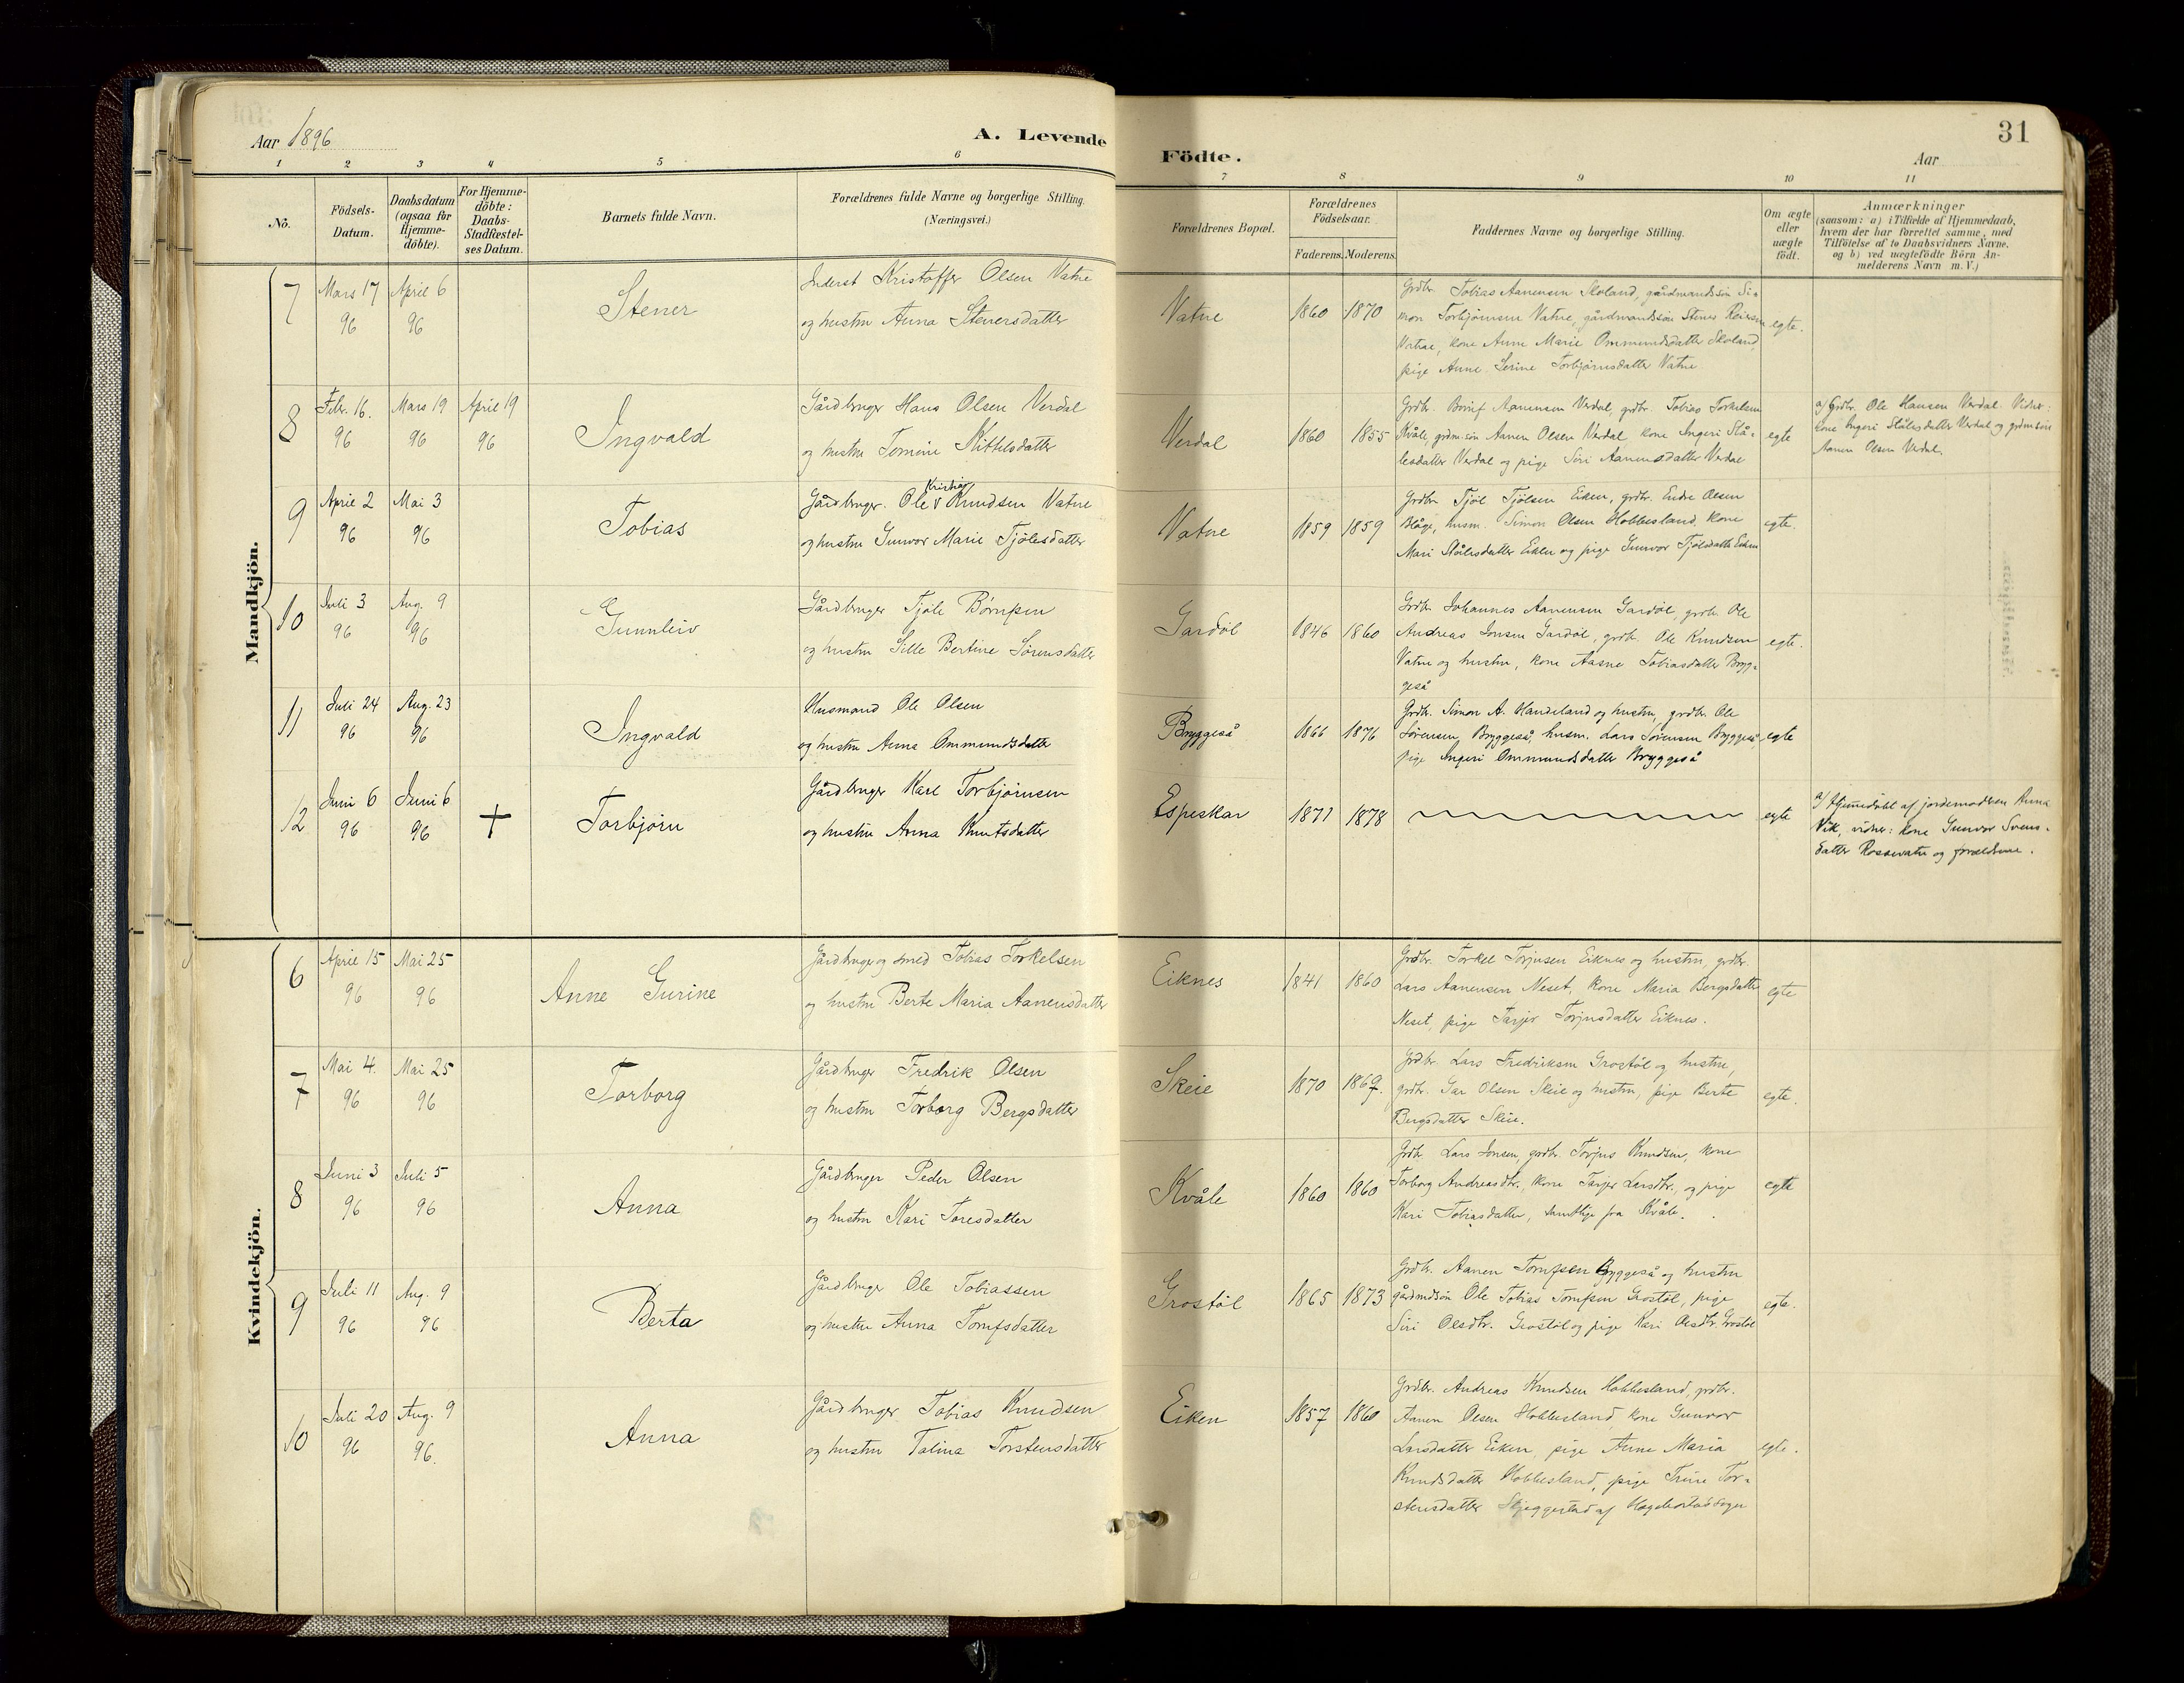 Aar 1896
A. Levende
Födte.
Aar
31
1 2 3 4 5 6 7 8 9 10 11
No.
Födsels-Datum.
Daabsdatum (ogsaa for Hjemme-döbte).
For Hjemme-döbte: Daabs-Stadfæstel-ses Datum.
Barnets fulde Navn.
Forældrenes fulde Navne og borgerlige Stilling.
(Næringsvei.)
Forældrenes Bopæl.
Forældrenes Födselsaar.
Faderens. Moderens.
Faddernes Navne og borgerlige Stilling.
Om ægte eller uægte födt.
Anmærkninger
(saasom: a) i Tilfælde af Hjemmedaab,
hvem der har forrettet samme, med
Tilföielse af to Daabsvidners Navne.
og b) ved uægtefödte Börn An-
melderens Navn m. V.)
Mandkjön.
7 Mars 17 96 April 6 96 Stener
Inderst Kristoffer Olsen Vatne
og hustru Anna Stenersdatter
Vatne 1860 1870
Grdbr. Tobias Aanensen Skoland, gårdmandssön Si-
mon Torbjörnsen Vatne, gårdmandssön Stener Reiersen
Vatne, kone Anne Marie Ommundsdatter Skoland,
pige Anne Serine Torbjörnsdatter Vatne
egte.
8 Febr. 16. 96 Mars 19 96 April 19 96 Ingvald
Gårdbruger Hans Olsen Verdal
og hustru Tomine Kittelsdatter
Verdal 1860 1855
Grdbr. Aanensen Verdal, grdbr. Tobias Torkelsen
Kvåle, grdm.sön Aanen Olsen Verdal, kone Ingeri Stå-
lesdatter Verdal og pige Siri Aanensdatter Verdal
egte
a) Grdbr. Ole Hansen Verdal. Vidner:
kone Ingeri Stålesdatter Verdal og grdmsön
Aanen Olsen Verdal.
9 April 2 96 Mai 3 96 Tobias
Kristian
Gårdbruger. Ole v Knudsen Vatne
og hustru Gunvor Marie Tjölesdatter
Vatne 1859 1859
Grdbr. Tjöl Tjölsen Eiken, grdbr. Endre Olsen
husm. Simon Olsen Hobbesland, kone
Mari Stålesdatter Eiken og pige Gunvor Tjölsdatter Eiken
egte.
10 Juli 3 96 Aug. 9 96 Gunnleiv
Gårdbruger Tjöle Börufsen
og hustru Sille Bertine Sörensdatter
Gardöl 1846 1860
Grdbr. Johannes Aanensen Gardöl, grdbr. Ole
Andreas Jonsen Gardöl, grdbr. Ole Knudsen
Vatne og hustru, kone Aasne Tobiasdatter Bryg-
geså
egte.
11 Juli 24 96 Aug. 23 96 Ingvald
Husmand Ole Olsen
og hustru Anna Ommundsdatter
Bryggeså 1866 1876
Grdbr. Simon A. Haudeland og hustru, grdbr. Ole
Sörensen, Bryggeså, husm. Lars Sörensen Bryggeså,
pige Ingeri Ommundsdatter Bryggeså
egte
12 Juni 6 96 Juni 6 96 + Torbjörn
Gårdbruger Karl Torbjörnsen
og hustru Anna Knutsdatter
Espeskar 1871 1878
egte
a) Hjemmedöbt af jordemoderen Anna
Vik, vidner: kone Gunvor Svens-
datter Rossevatn og forældrene.
Kvindekjön.
6 April 15 96 Mai 25 96 Anne Gurine
Gårdbruger og smed Tobias Torkelsen
og hustru Berte Maria Aanensdatter
Eiknes 1841 1860
Grdbr. Torkel Torjusen Eiknes og hustru, grdbr.
Lars Aanensen Neset, kone Maria Bergsdatter
Neset, pige Tarjer Torjusdatter Eiknes.
egte
7 Mai 4. 96 Mai 25 96 Torborg
Gårdbruger Fredrik Olsen
og hustru Torborg Bergsdatter
Skeie 1870 1869.
Grdbr. Lars Fredriksen Grostöl og hustru,
grdbr. Olsen Skeie og hustru, pige Berte
Bergsdatter Skeie.
egte.
8 Juni 3 96 Juli 5 96 Anna
Gårdbruger Peder Olsen
og hustru Kari Toresdatter
Kvåle 1860 1860
Grdbr. Lars Jonsen, grdbr. Torjus Knudsen, kone
Torborg Andreasdtr., kone Tarjer Larsdtr., og pige
Kari Tobiasdatter, samtlige fra Kvåle.
egte
9 Juli 11 96 Aug. 9 96 Berta
Gårdbruger Ole Tobiassen
og hustru Anna Tomfsdatter
Grostöl 1865 1873
Grdbr. Aanen Tomfsen Bryggeså og hustru
gårdmdsön Ole Tobias Tomfsen Grostöl, pige
Siri Olsdtr. Grostöl og pige Kari Olsdtr. Grostöl
egte.
10 Juli 20 96 Aug. 9 96. Anna
Gårdbruger Tobias Knudsen
og hustru Talina Torstensdatter
Eiken 1857 1860
Grdbr. Andreas Knudsen Hobbesland, grdbr.
Aanen Olsen Hobbesland, kone Gunvor
Larsdatter Eiken, pige Anne Maria
Knudsdatter Hobbesland, pige Trine Tor-
stensdatter Skjeggestad af Hægebostad sogn
egte.